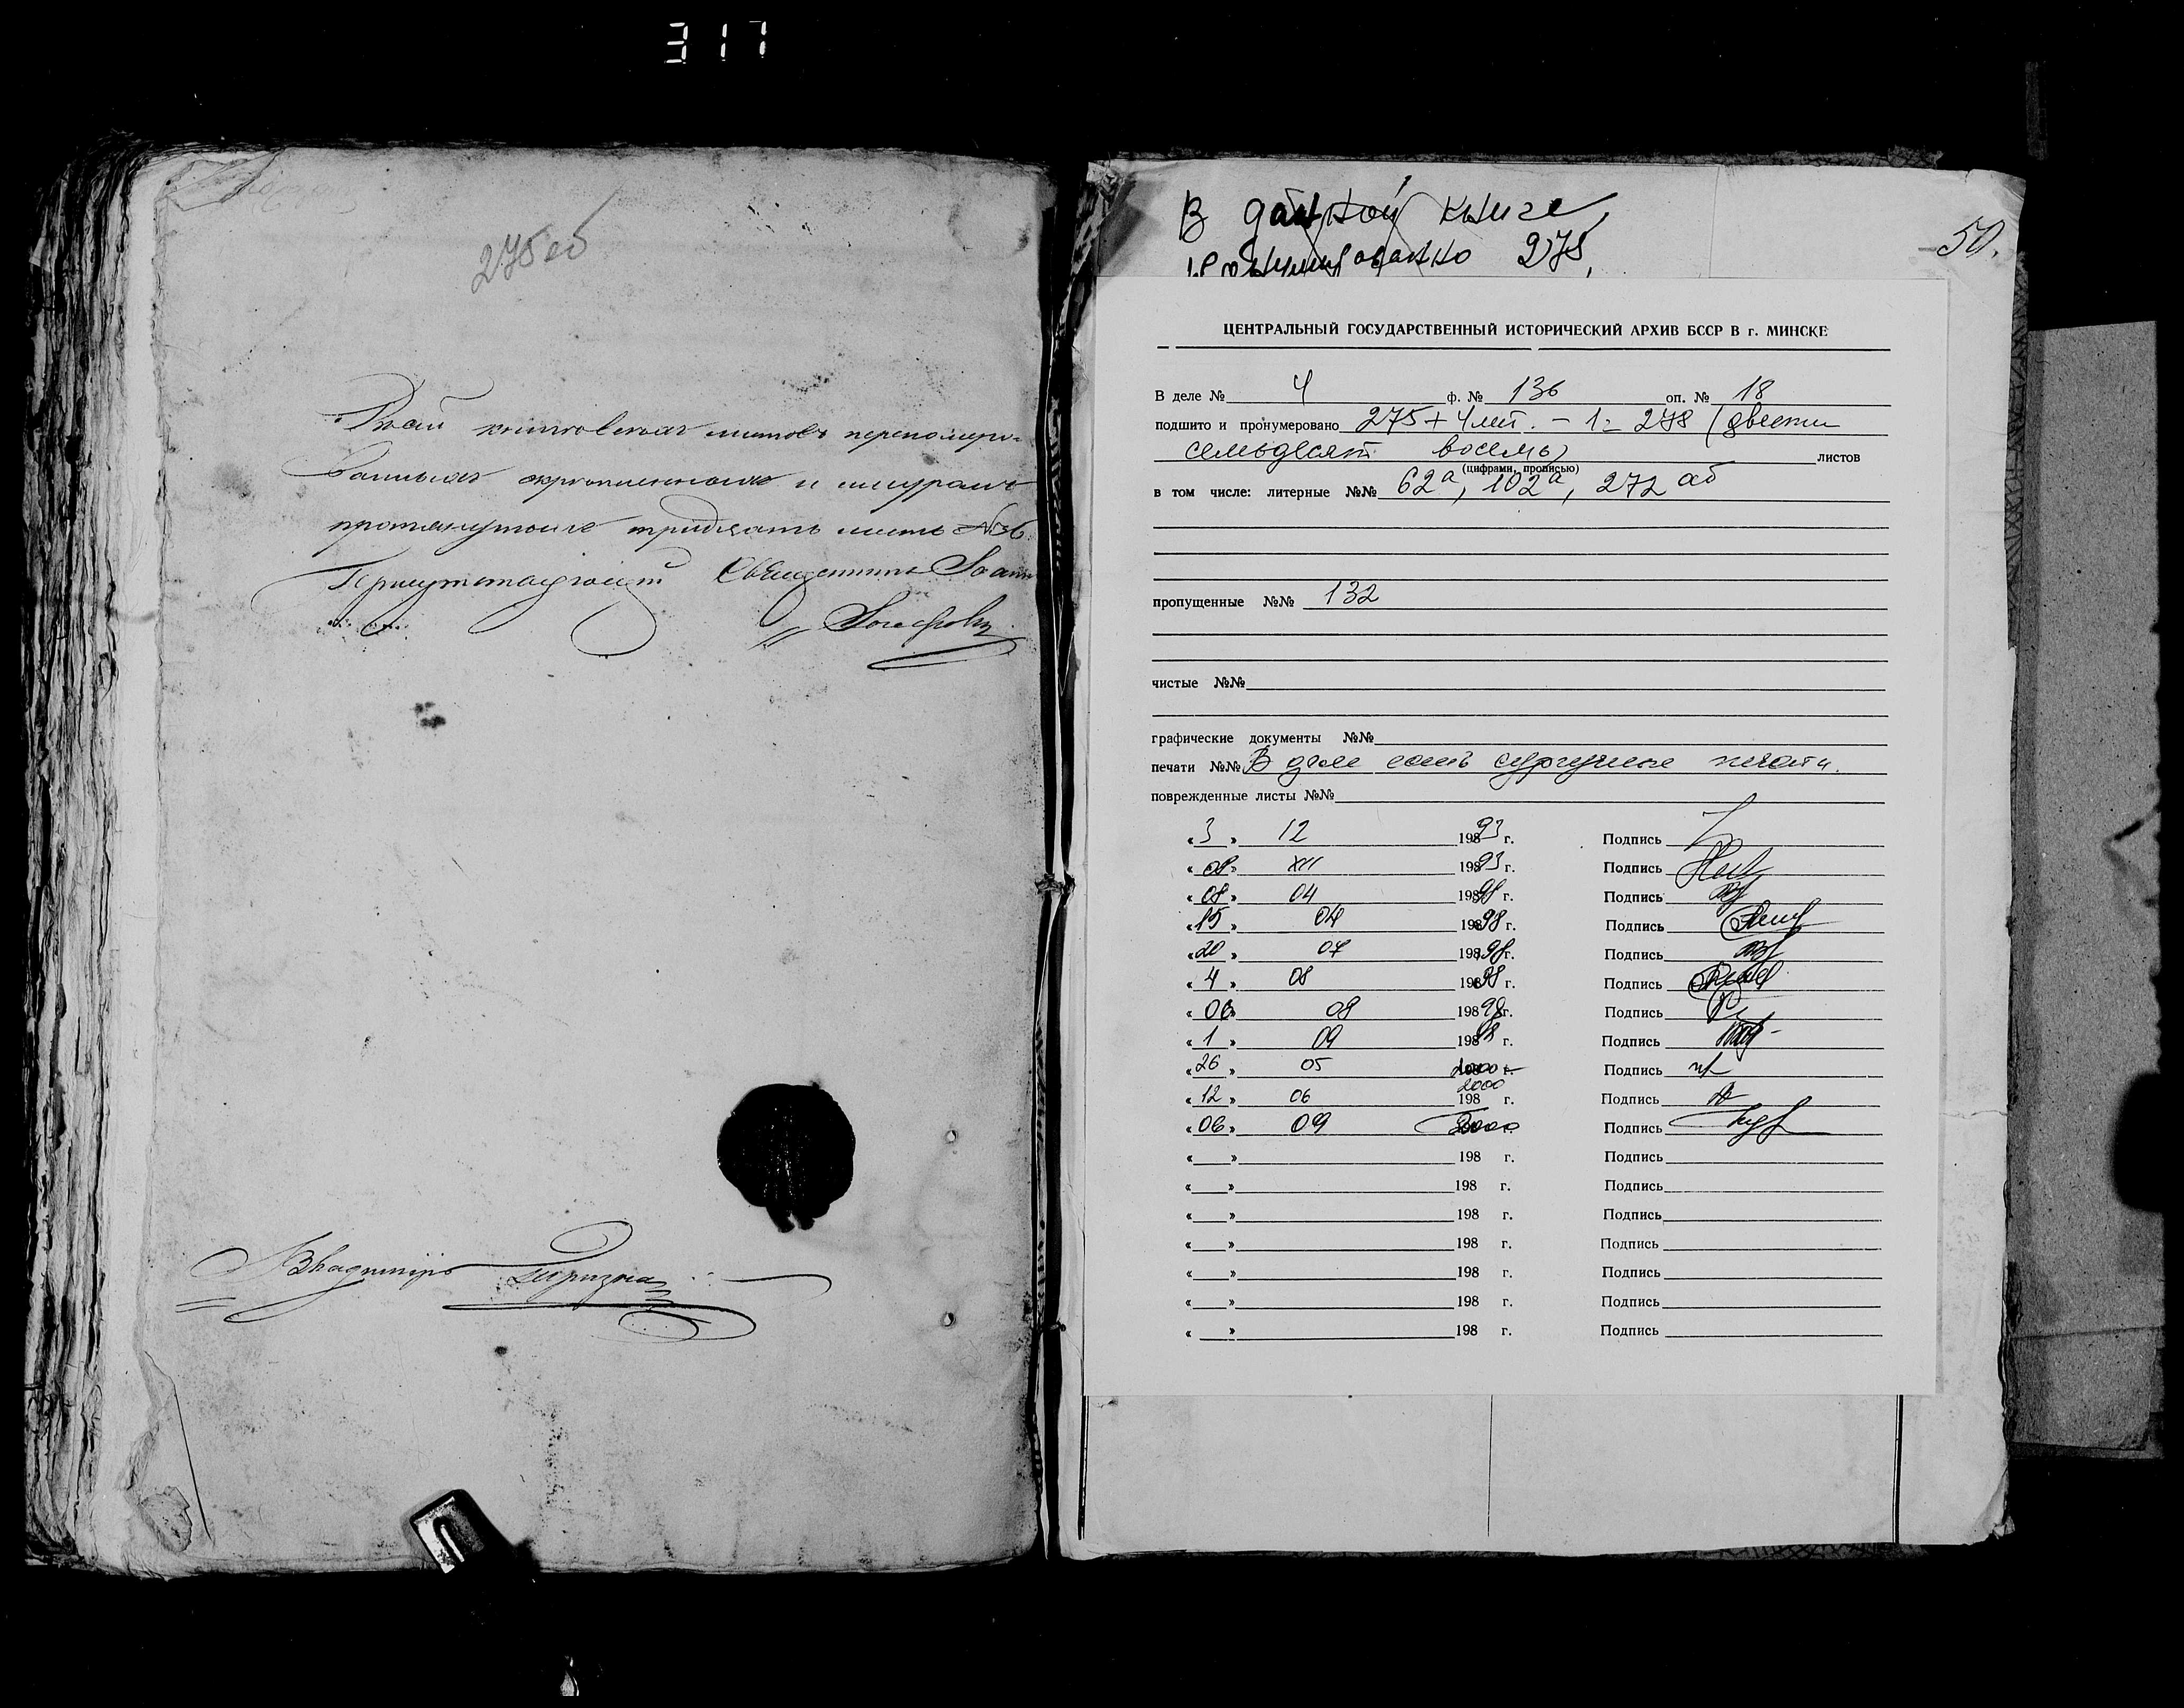 317
275об
листовъ перенумеро-
ванныхъ скрепленныхъ и шнуромъ
тридцать шесть №36
Присутствующій Священникъ Іоаннъ
Владиміръ
В данной книге
пронумеровано 275,
50.
ЦЕНТРАЛЬНЫЙ ГОСУДАРСТВЕННЫЙ ИСТОРИЧЕСКИЙ АРХИВ БССР В г. МИНСКЕ
В деле № 4 ф. № 136 оп. № 18
подшито и пронумеровано 275 + 4 лит. - 1 = 278 (двести
семьдесят восемь) листов
(цифрами, прописью)
в том числе: литерные №№ 62а, 102а, 272 аб
пропущенные №№ 132
чистые №№
графические документы №№
печати №№ В деле есть сургучные печати.
поврежденные листы №№
« 3 » 12 19893 г. Подпись
« 08 » XII 19893 г. Подпись
« 08 » 04 19898 г. Подпись
« 15 » 04 19898 г. Подпись
« 20 » 07 19898 г. Подпись
« 4 » 08 19898 г. Подпись
« 06 » 08 19898 г. Подпись
« 1 » 09 19898 г. Подпись
« 26 » 05 2000 г. Подпись
« 12 » 06 2000 198 г. Подпись
« 06 » 09 2000 г. Подпись
« » 198 г. Подпись
« » 198 г. Подпись
« » 198 г. Подпись
« » 198 г. Подпись
« » 198 г. Подпись
« » 198 г. Подпись
« » 198 г. Подпись